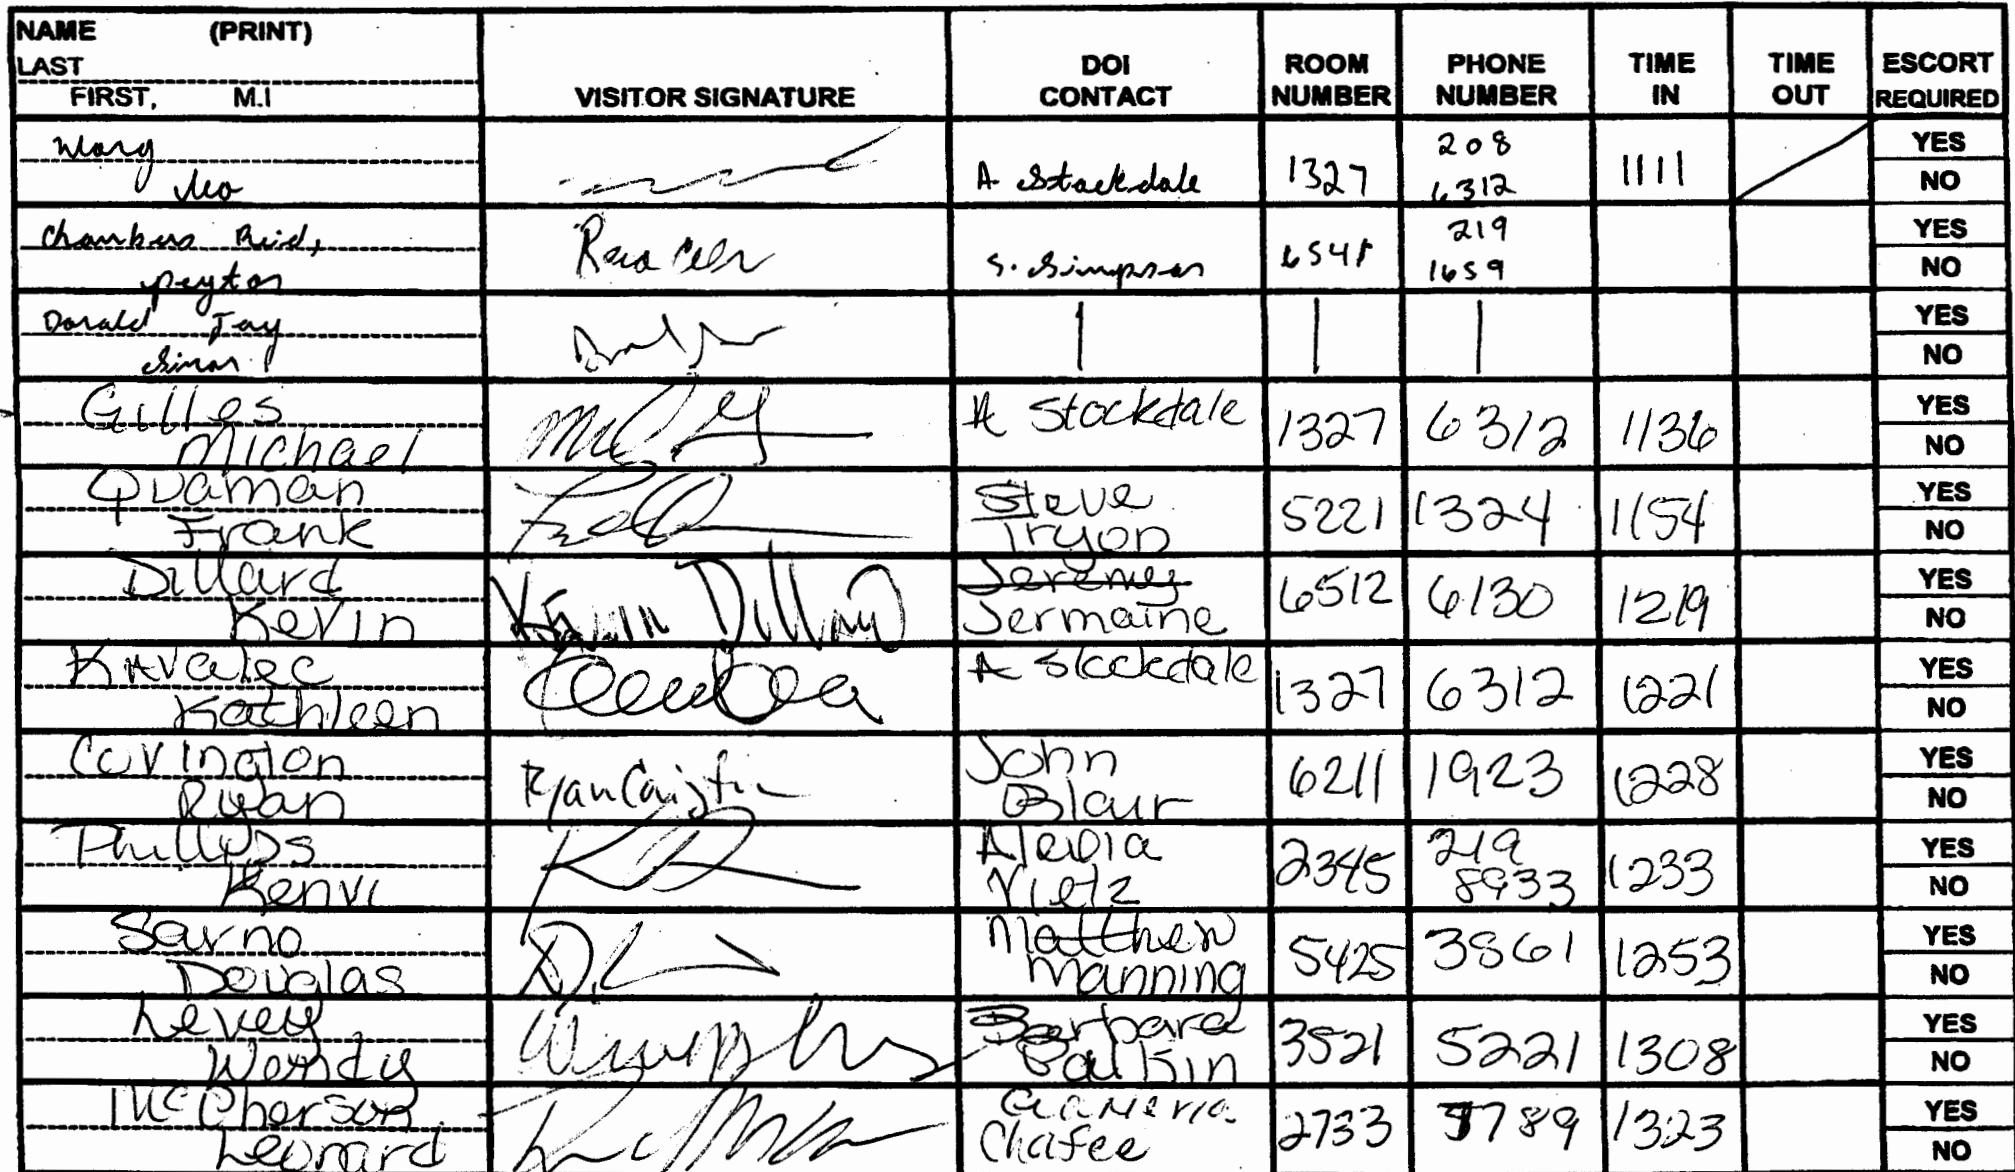 NAME (PRINT)
LAST
FIRST, M.I
VISITOR SIGNATURE
DOI CONTACT
ROOM NUMBER
PHONE NUMBER
TIME IN
TIME OUT
ESCORT REQUIRED
Wang
A Stockdale 1327 208 6312 1111 YES
NO
Chambers Reid,
Peyton S. Simpson 219 1659 YES
NO
Donald Jay
Simon YES
NO
Gilles
Michael A Stockdale 1327 6312 1136 YES
NO
Quaman
Frank Steve Tryon 5221 1324 1154 YES
NO
Dillard
Kevin Kevin Dillard Jeremy Jermaine 6512 6130 1219 YES
NO
Kavalec
Kathleen A Stockdale 1327 6312 1221 YES
NO
Covington
Ryan John Blair 6211 1923 1228 YES
NO
Phillips
Kenvi Vietz 2345 219 8933 1233 YES
NO
Sarno
Douglas Matthew Manning 5425 3861 1253 YES
NO
Levey
Wendy Barbara 3521 5221 1308 YES
NO
McPherson
Leonard Chafee 2733 7789 1323 YES
NO